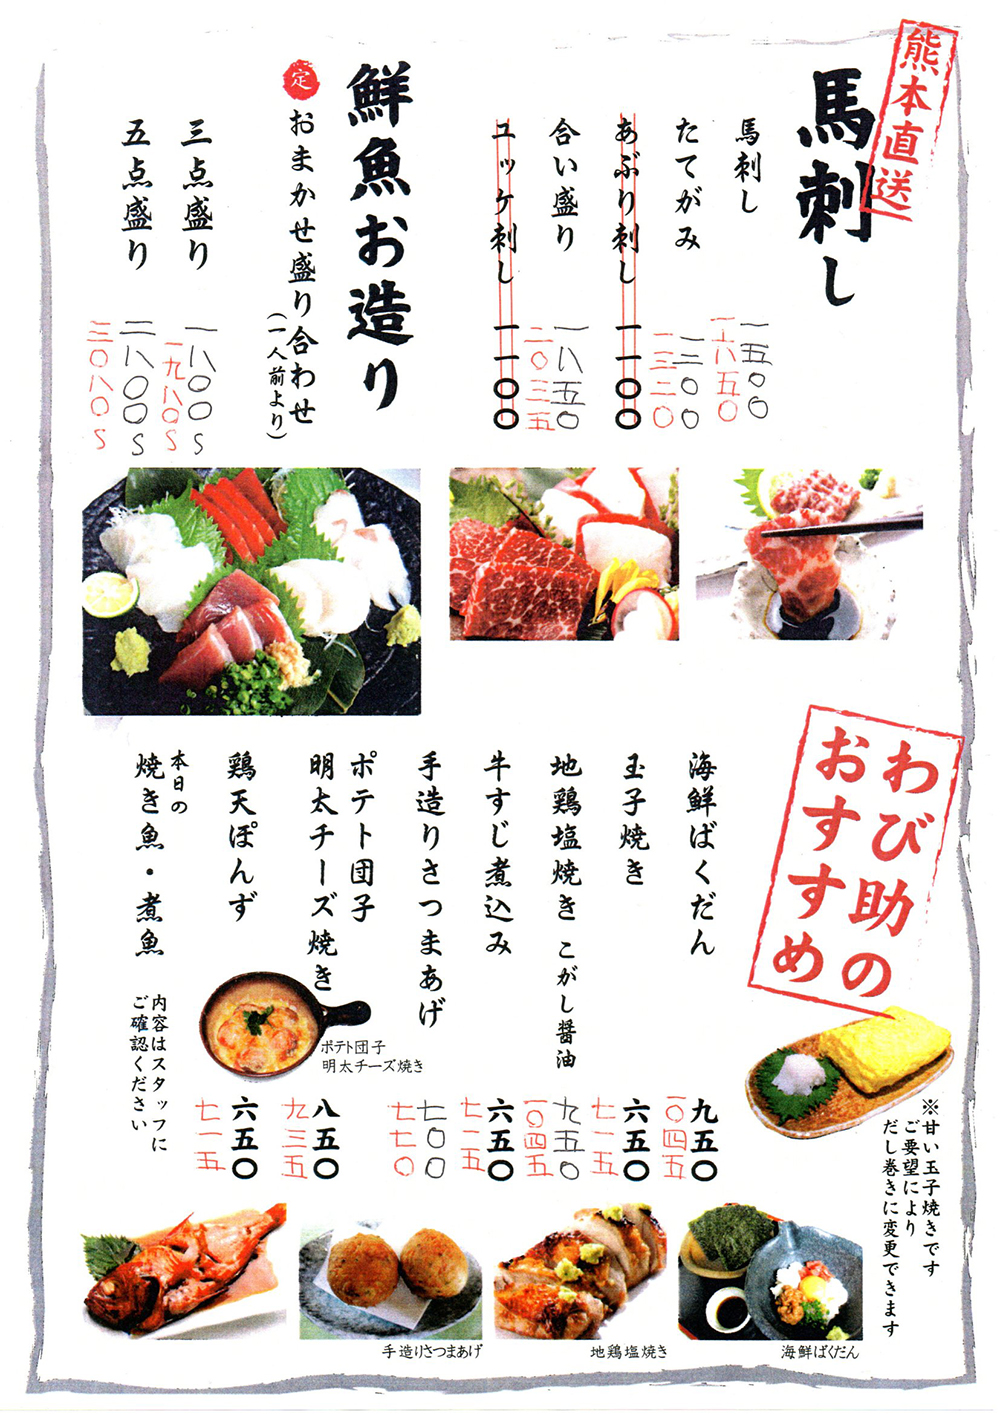 熊本直送
馬刺し
馬刺し 一五〇〇
一六五〇
たてがみ 一二〇〇
一三二〇
あぶり刺し 一一〇〇
合い盛り 一八五〇
二〇三五
ユッケ刺し 一一〇〇
鮮魚お造り
定 おまかせ盛り合わせ
(一人前より)
三点盛り 一八〇〇S
一九八〇S
五点盛り 二八〇〇S
三〇八〇S
わび助の
おすすめ
※甘い玉子焼きです
ご要望により
だし巻きに変更できます
海鮮ばくだん 九五〇
一〇四五
玉子焼き 六五〇
七一五
地鶏塩焼き こがし醤油 九五〇
一〇四五
牛すじ煮込み 六五〇
七一五
手造りさつまあげ 七〇〇
七七〇
ポテト団子
明太チーズ焼き 八五〇
九三五
鶏天ぽんず 六五〇
七一五
本日の
焼き魚・煮魚
内容はスタッフに
ご確認ください
ポテト団子
明太チーズ焼き
手造りさつまあげ
地鶏塩焼き
海鮮ばくだん